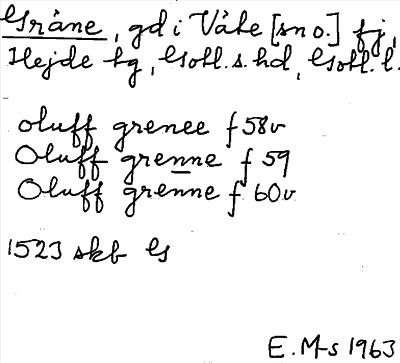 Gråne, gd i Våte [sn o.] fj,
Hejde tg, Gotl. s. hd, Gotl. l.
oluff grenee f 58v
Oluff grenne f 59
Oluff grenne f 60v
1523 skb G
E. M-s 1963